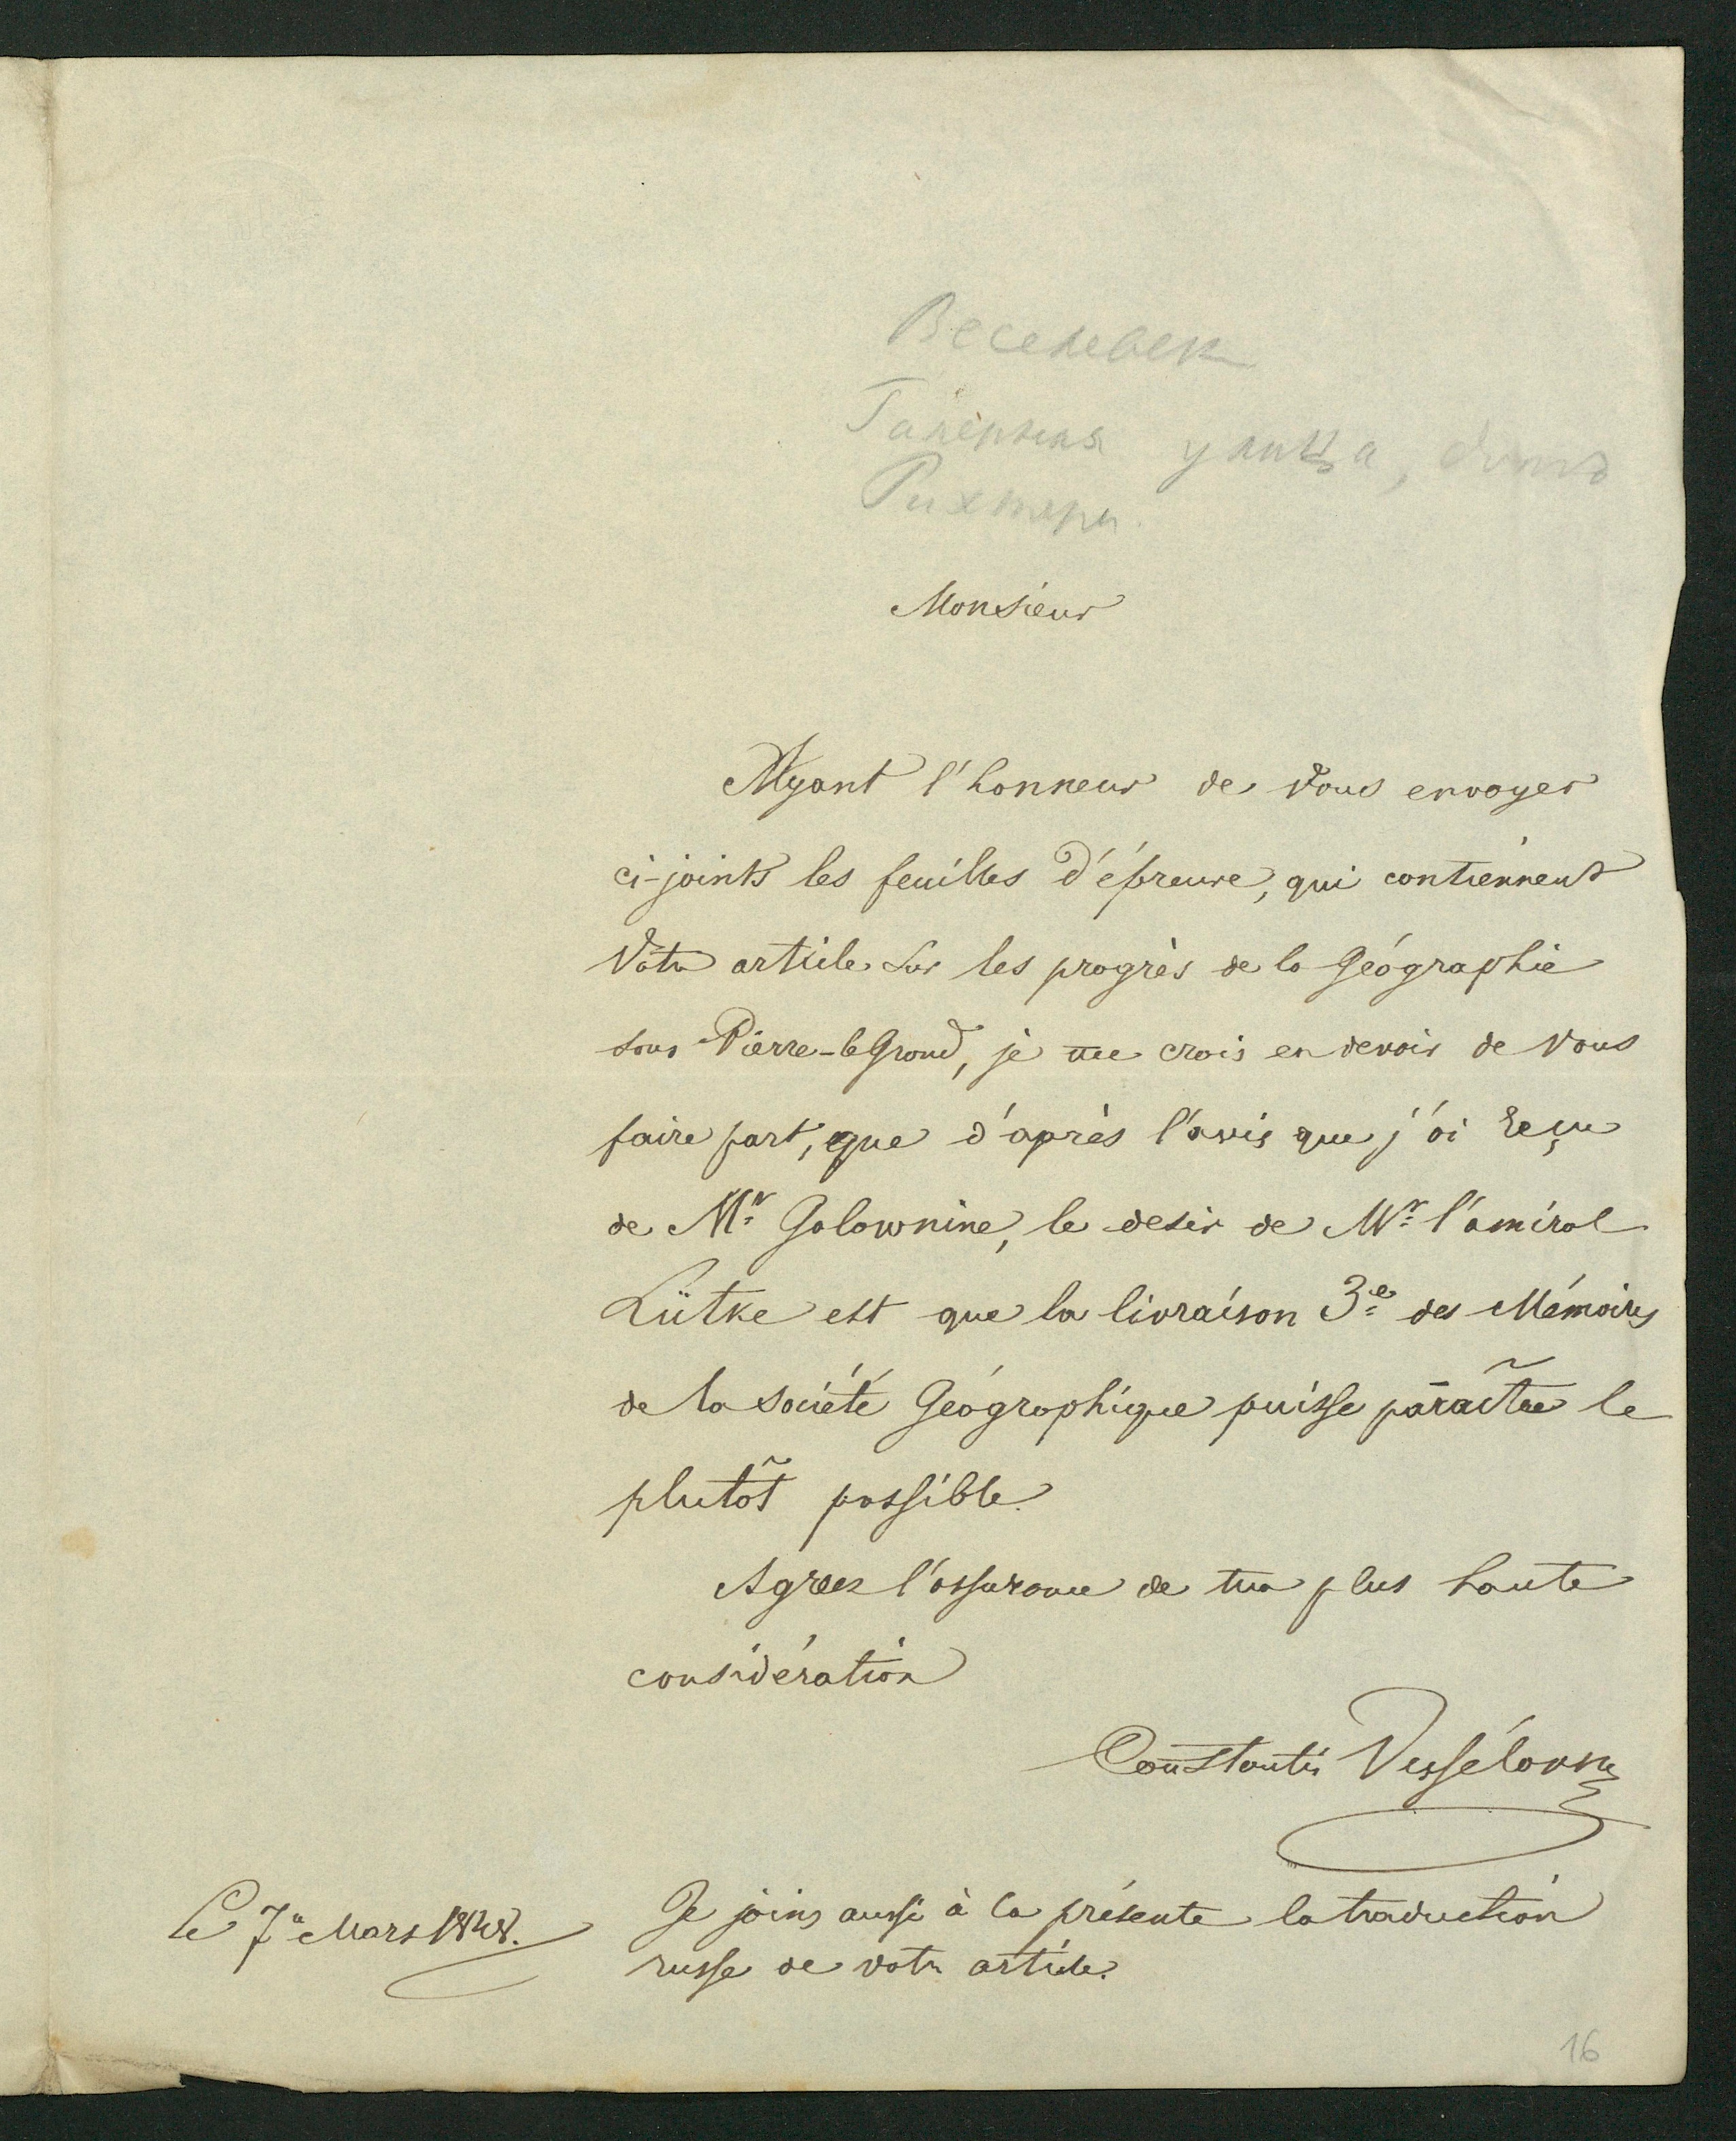 Веселовск
Галерная улица, домъ
Рихтера.
Monsieur
Ayant l'honneur de Vous envoyer
ci-joints les feuilles d'épreuve, qui contiennent
Votre article sur les progrès de la Géographie
sous Pierre-le Grand, je me crois en devoir de Vous
faire part, que d'après l'avis que j'ai reçu
de Mr Golownine, le desir de Mr l'amiral
Lütke est que la livraison 3e des Mémoires
de la société Géographique puisse paraître le
plutôt possible.
Agréez l'assurance de ma plus haute
considération
Constantin Vessélovsky
Je joins aussi à la présente la traduction
russe de votre article.
Le 7 Mars 1848.
16